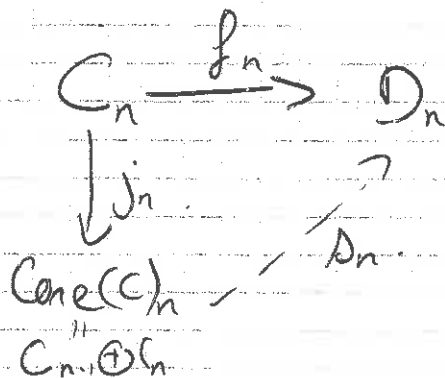 f_n
C_n → D_n
↓ j_n .
s_n .
Cone(C)_n
=
C_{n-1} ⊕ C_n